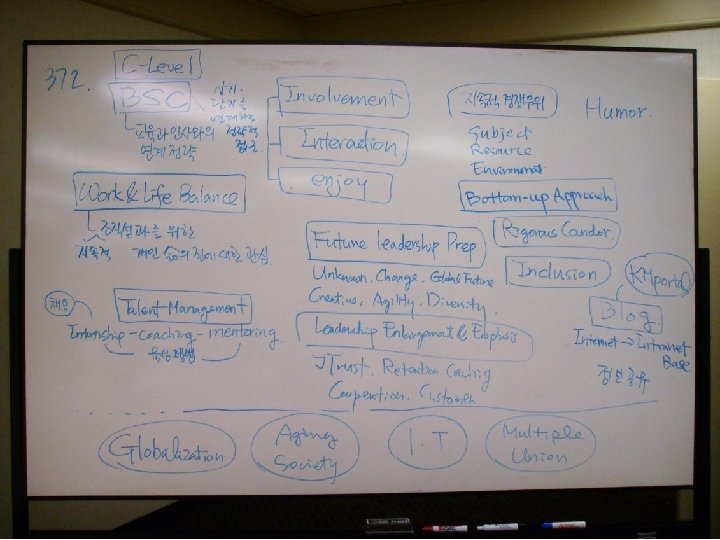 372.
C-Level
BSC
장기.
단기를
연계하는
전략적
접근.
교육과 인사와의
연계 전략
Work & Life Balance
조직성과를 위한
지속적
개인 삶의 질에 대한 관심
채용
Talent Management
Internship - coaching - mentoring.
육성
Involvement
Interaction
enjoy
Future Leadership Prep
Unknown. Change. Global Future
Creative, Agility. Diversity.
Leadership Enlargement & Emphasis
Trust. Retention Coaching
Cooperation. Customer
지속적 경쟁우위
Subject
Resource
Environment
Humor.
Bottom-up Approach
Rigorous Candor.
Inclusion
KM portal
Blog.
Internet → Intranet
Base
정보공유
Globalization
Aging
Society
I.T
Multiple
Union